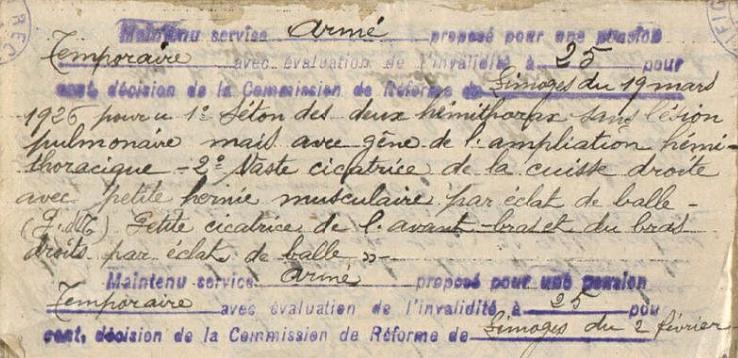 Maintenu service Armé proposé pour une pension
Temporaire avec évaluation de l'invalidité à 25 pour
cent, décision de la Commission de Réforme de Limoges du 19 mars
1926 pour « 1º Séton des deux hémithorax sans lésion
pulmonaire mais avec gêne de l'ampliation hémi-
thoracique - 2º Vaste cicatrice de la cuisse droite
avec petite hernie musculaire par éclat de balle -
Petite cicatrice de l'avant-bras et du bras
droits par éclat de balle » -
Maintenu service Armé proposé pour une pension
Temporaire avec évaluation de l'invalidité à 25 pour
cent, décision de la Commission de Réforme de Limoges du 2 février